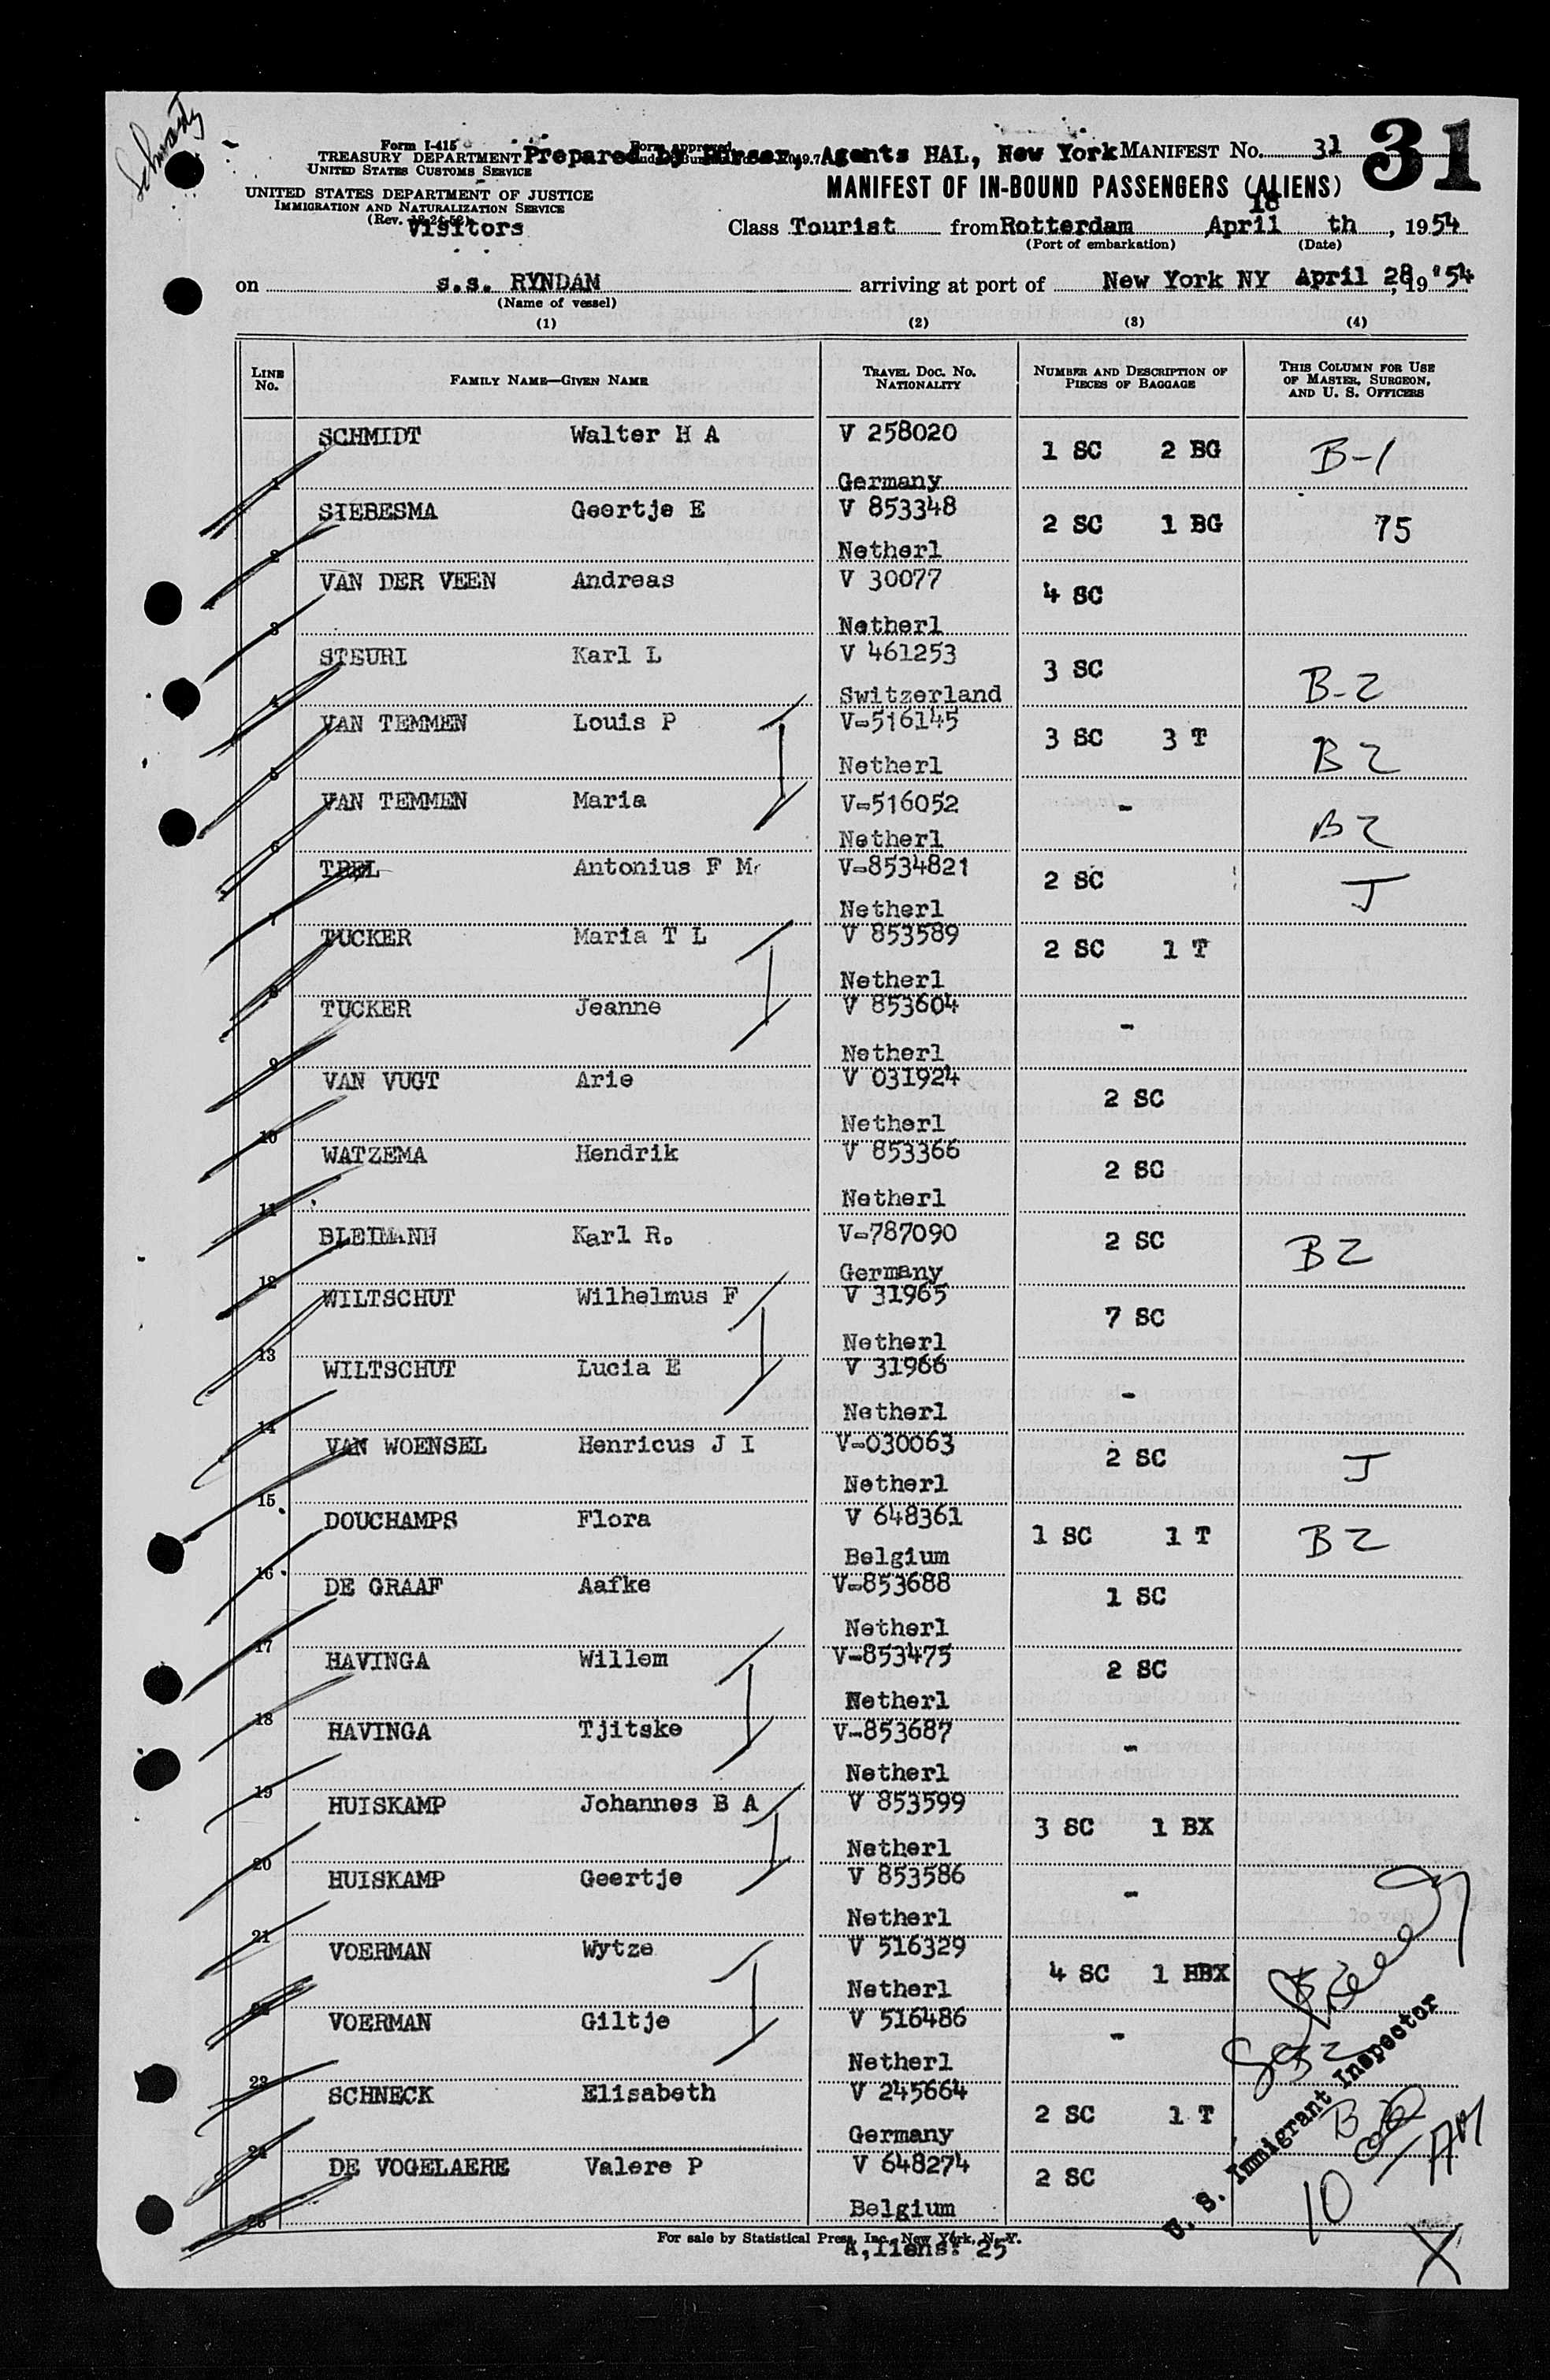 Schwartz
Form I-415
TREASURY DEPARTMENT
UNITED STATES CUSTOMS SERVICE
UNITED STATES DEPARTMENT OF JUSTICE
IMMIGRATION AND NATURALIZATION SERVICE
(Rev. 12-24-52)
Visitors
Form approved
Prepared by Purser, Agents HAL, New York MANIFEST No. 31
31
MANIFEST OF IN-BOUND PASSENGERS (ALIENS)
Class Tourist from Rotterdam April 18 th, 1954
(Port of embarkation) (Date)
on s.s. RYNDAM arriving at port of New York NY April 28, 19 '54
(Name of vessel)
(1) (2) (3) (4)
LINE No. FAMILY NAME—GIVEN NAME TRAVEL DOC. NO. NATIONALITY NUMBER AND DESCRIPTION OF PIECES OF BAGGAGE THIS COLUMN FOR USE OF MASTER, SURGEON, AND U. S. OFFICERS
1 SCHMIDT Walter H A V 258020 Germany 1 SC 2 BG B-1
2 SIEBESMA Geertje E V 853348 Netherl 2 SC 1 BG 75
3 VAN DER VEEN Andreas V 30077 Netherl 4 SC
4 STEURI Karl L V 461253 Switzerland 3 SC B-2
5 VAN TEMMEN Louis P V-516145 Netherl 3 SC 3 T B2
6 VAN TEMMEN Maria V-516052 Netherl - B2
7 TREL Antonius F M V-8534821 Netherl 2 SC J
8 TUCKER Maria T L V 853589 Netherl 2 SC 1 T
9 TUCKER Jeanne V 853604 Netherl -
10 VAN VUGT Arie V 031924 Netherl 2 SC
11 WATZEMA Hendrik V 853366 Netherl 2 SC
12 BLEIMANN Karl R. V-787090 Germany 2 SC B2
13 WILTSCHUT Wilhelmus F V 31965 Netherl 7 SC
14 WILTSCHUT Lucia E V 31966 Netherl -
15 VAN WOENSEL Henricus J I V-030063 Netherl 2 SC J
16 DOUCHAMPS Flora V 648361 Belgium 1 SC 1 T B2
17 DE GRAAF Aafke V-853688 Netherl 1 SC
18 HAVINGA Willem V-853475 Netherl 2 SC
19 HAVINGA Tjitske V-853687 Netherl -
20 HUISKAMP Johannes B A V 853599 Netherl 3 SC 1 BX
21 HUISKAMP Geertje V 853586 Netherl -
22 VOERMAN Wytze V 516329 Netherl 4 SC 1 HBX
23 VOERMAN Giltje V 516486 Netherl -
24 SCHNECK Elisabeth V 245664 Germany 2 SC 1 T
25 DE VOGELAERE Valere P V 648274 Belgium 2 SC
U. S. Immigrant Inspector
10 - AM
X
For sale by Statistical Press, Inc., New York, N. Y.
A,liens: 25